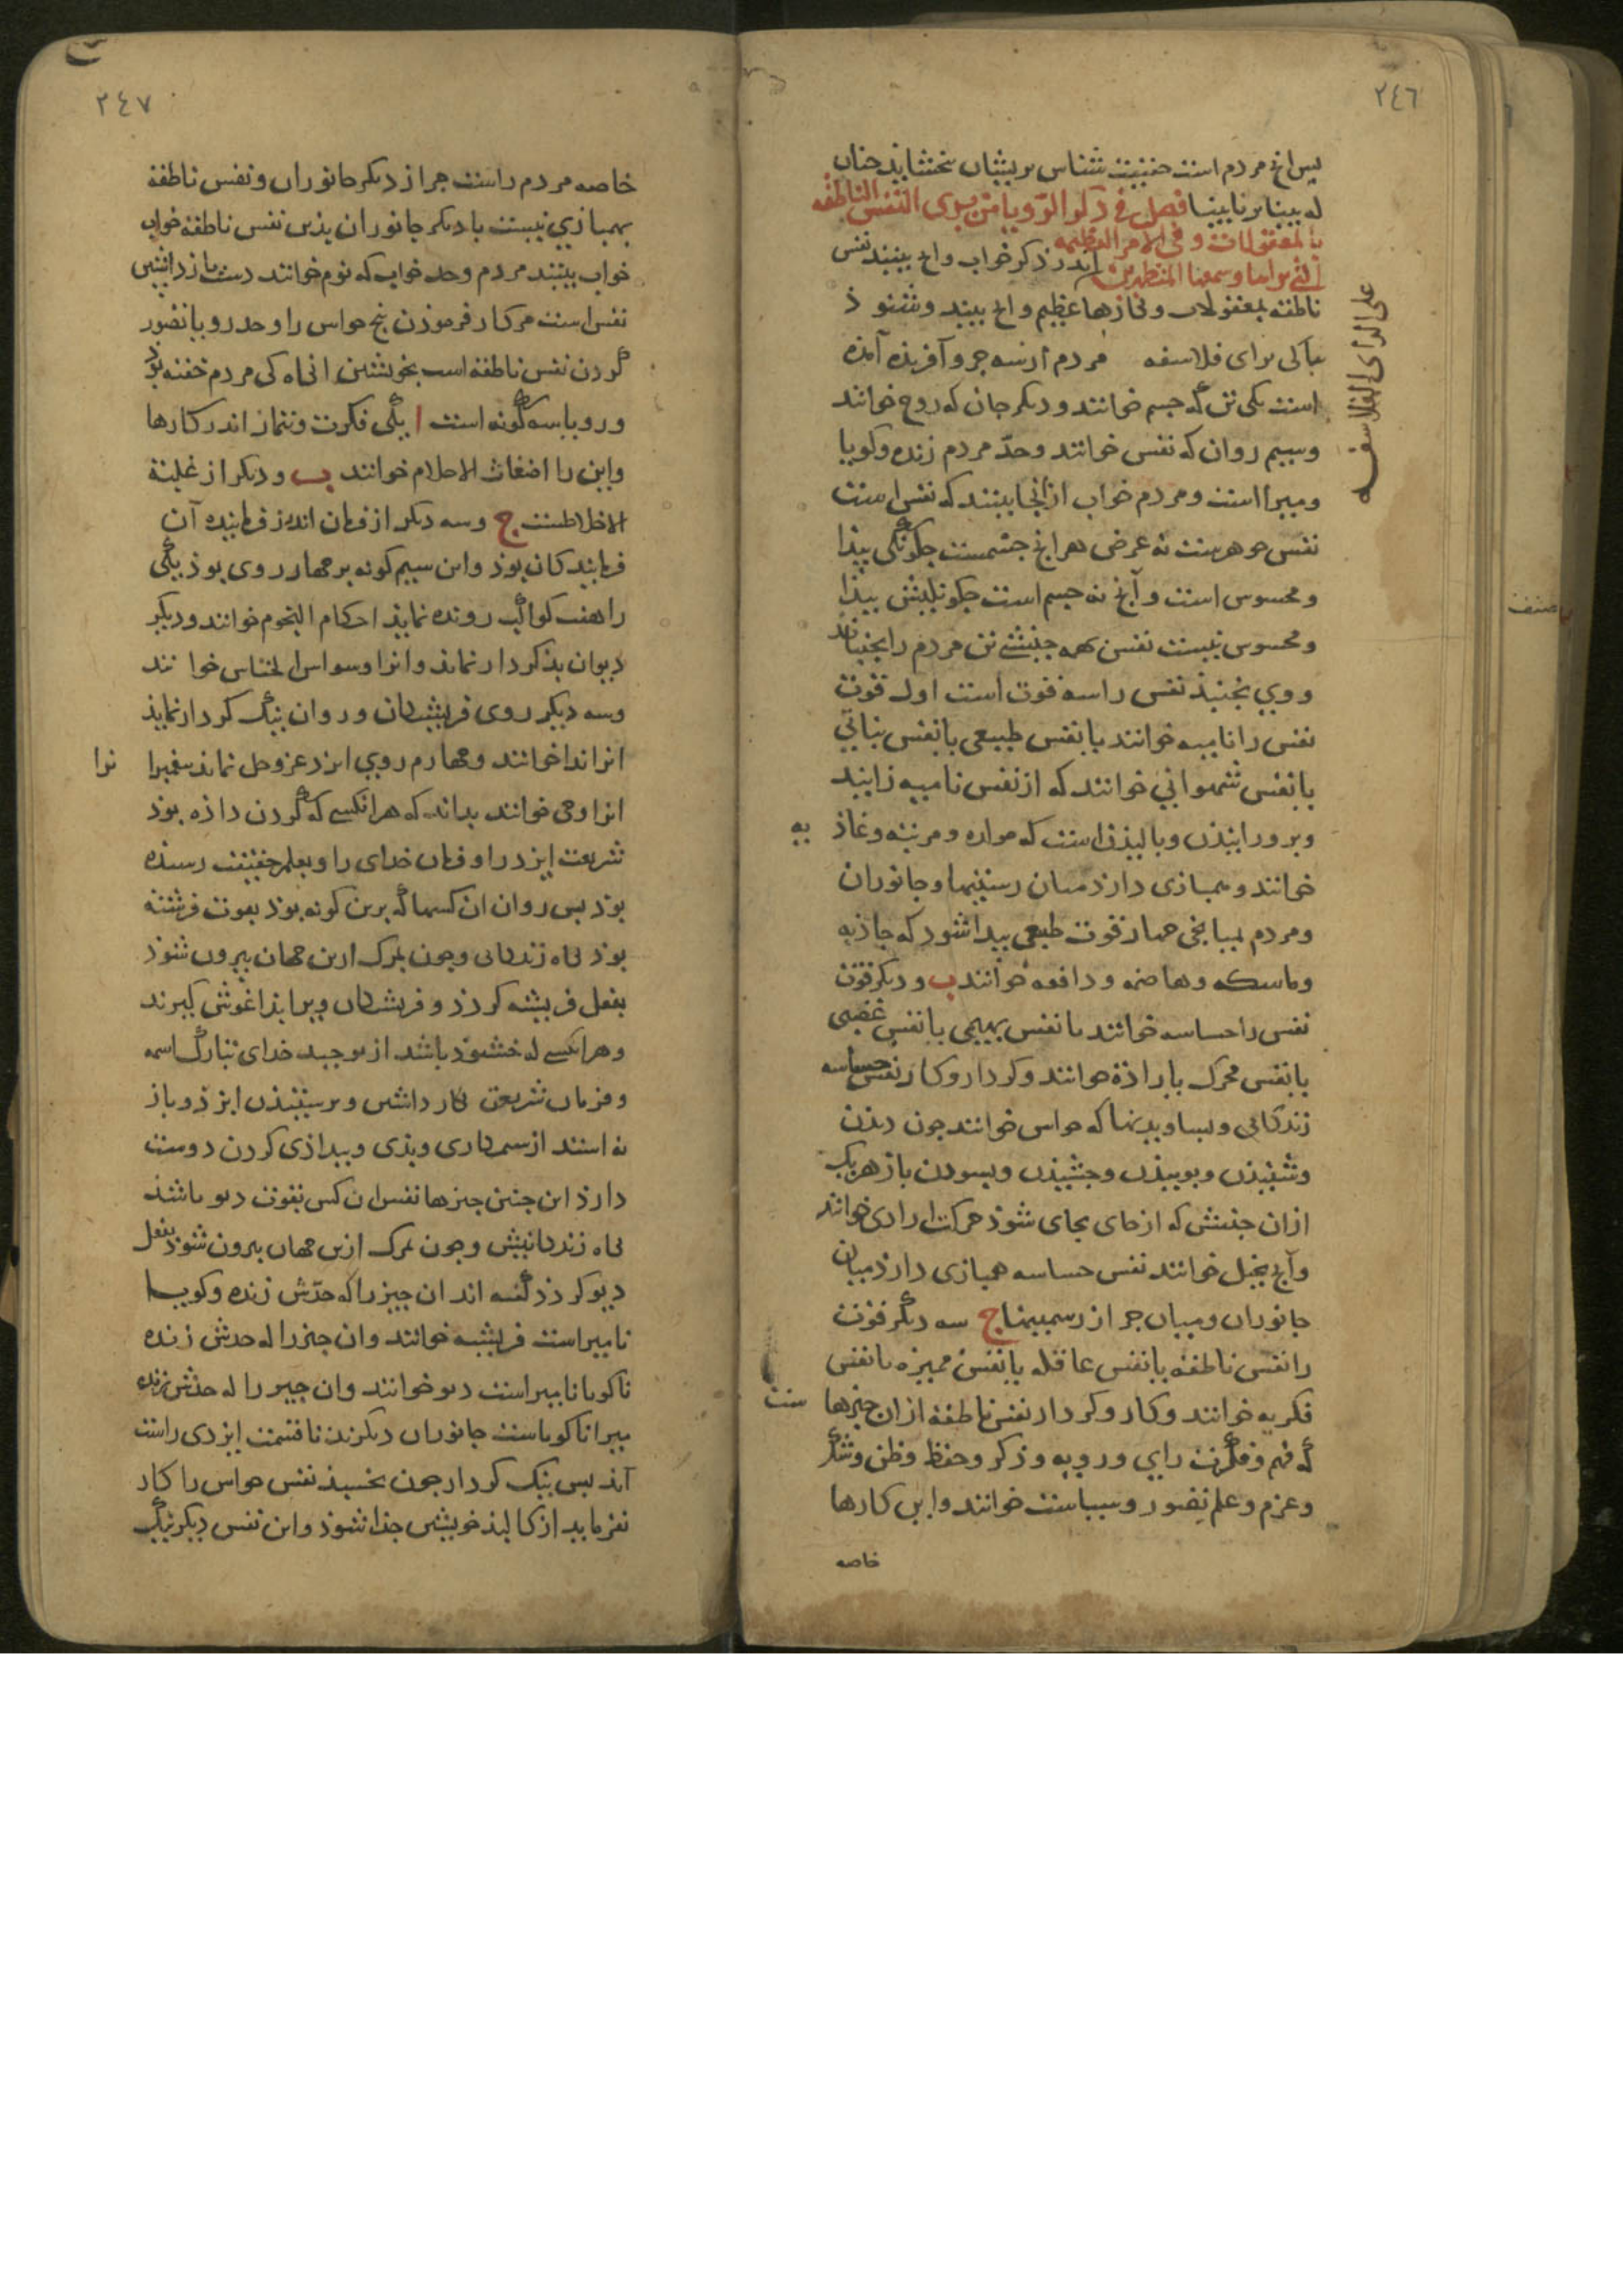 ٢٤٦
بس انچ مردم است حقیقت شناس بریشان بخشاید چنان
که بینا بر نابینا فصل فی ذکر الرویا متی یری النفس الناطقه
بالمعقولات و فی الامر العظیمه
اندر ذکر خواب واچ بینند نفس
ناطقه بمعقولات و کارها عظیم واچ بیند و شنوذ
برای فلاسفه مردم از سه جز و آفریذه آمده
علی الرأی الفلاسفه
است یکی تن که جسم خوانند و دیکر جان که روح خوانند
وسیم روان که نفس خوانند وحدّ مردم زنده وکویا
ومیرا است ومردم خواب ازانجا بینند که نفس است
نفس جوهرست نه عرض هرانچ جسمست چکونکی پیذا
ومحسوس است وآنچ نه جسم است چکونکیش پیذا
ومحسوس نیست نفس همه جنبشی تن مردم را بجنباند
ووی بجنبذ نفس را سه قوت است اول قوت
نفس را نامیه خوانند یا نفس طبیعی یا نفس نباتی
یا نفس شهوانی خوانند که از نفس نامیه زایند
وبرورانیذن وبالیذن است که مولده و مربیه وغاذیه
خوانند وهمبازی دارذ میان رستنیها وجانوران
ومردم بمیانجی چهار قوت طبعی پیدا شود که جاذبه
وماسکه وهاضمه ودافعه خوانند ب ودیکر قوت
نفس را حساسه خوانند یا نفس بهیمی یا نفس غضبی
یا نفس محرک باراذة خوانند وکردار وکار نفس حساسه
زندکانی وبساویدنها که حواس خوانند چون دیذن
وشنیذن وبوییذن وچشیذن وبسوذن باز هر یک
ازان جنبش که از جای بجای شوذ حرکت ارادی خوانند
وآنچ تخیل خوانند نفس حساسه همبازی دارذ میان
جانوران ومیان جز از رستنیها ج سه دیکر قوت
را نفس ناطقه یا نفس عاقله یا نفس ممیزه یا نفس
فکریه خوانند وکار وکردار نفس ناطقه ازان چیزها ست
که فهم وفکرت رای ورویه وذکر وحفظ وظن وشک
وعزم وعلم تصور وسیاست خوانند واین کارها
خاصه
٢٤٧
خاصه مردم راست جز از دیکر جانوران ونفس ناطقه
بهمبازی نیست با دیکر جانوران بذین نفس ناطقه خواب
خواب بینند مردم وحد خواب که نوم خوانند دست باز داشتن
نفس است مر کار فرموذن پنج حواس را وحد رویا تصور
کردن نفس ناطقه است بخویشتن انکاه کی مردم خفته بوذ
ورویا سه کونه است ا یکی فکرت وتیمار اندر کارها
واین را اضغاث الاحلام خوانند ب ودیکر از غلبة
الاخلاطست ج وسه دیکر از فرمان اندر فرماینده آن
فرمایندکان بوذ واین سیم کونه بر چهار روی بوذ یکی
را هفت کواکب رونده نمایذ احکام النجوم خوانند ودیکر
دیوان بذکردار نماند وانرا وسواس الخناس خوانند
وسه دیکر روی فریشتکان وروان نیک کردار نمایذ
انرا ندا خوانند وچهارم روی ایزد عزوجل نماید بیغمبرانرا
انرا وحی خوانند بداند که هرانکسی که کردن داذه بوذ
شریعت ایزد را وفرمان خدای را وبعلم حقیقت رسیذه
بوذ بس روان ان کسها که برین کونه بوذ بقوت فرشته
بوذ بکاه زندکانی وچون بمرک ازین جهان بیرون شوذ
بفعل فریشته کردذ وفریشتکان ویرا بذ اغوش کیرند
وهرانکسی که خشنوذ باشد از توحید خدای تبارک اسمه
وفرمان شریعت کار داشتن وبرستیذن ایزذ وباز
نه استد از ستمکاری وبذی وبیداذی کردن دوست
دارذ این چنین چیزها نفس ان کس بقوت دیو باشد
بکاه زندکانیش وچون بمرک ازین جهان بیرون شوذ بفعل
دیو کردذ کفته اند ان چیز را که حدّش زنده وکویا
نامیراست فریشته خوانند وان چیز را که حدش زنده
ناکویا نامیراست دیو خوانند وان چیز را که حدّش زنده
میرا ناکویاست جانوران دیکرند تا قسمت ایزدی راست
آید بس نیک کردار چون بخسبذ نفس حواس را کار
نفرماید از کالبذ خویش جذا شوذ واین نفس دیکر نیک